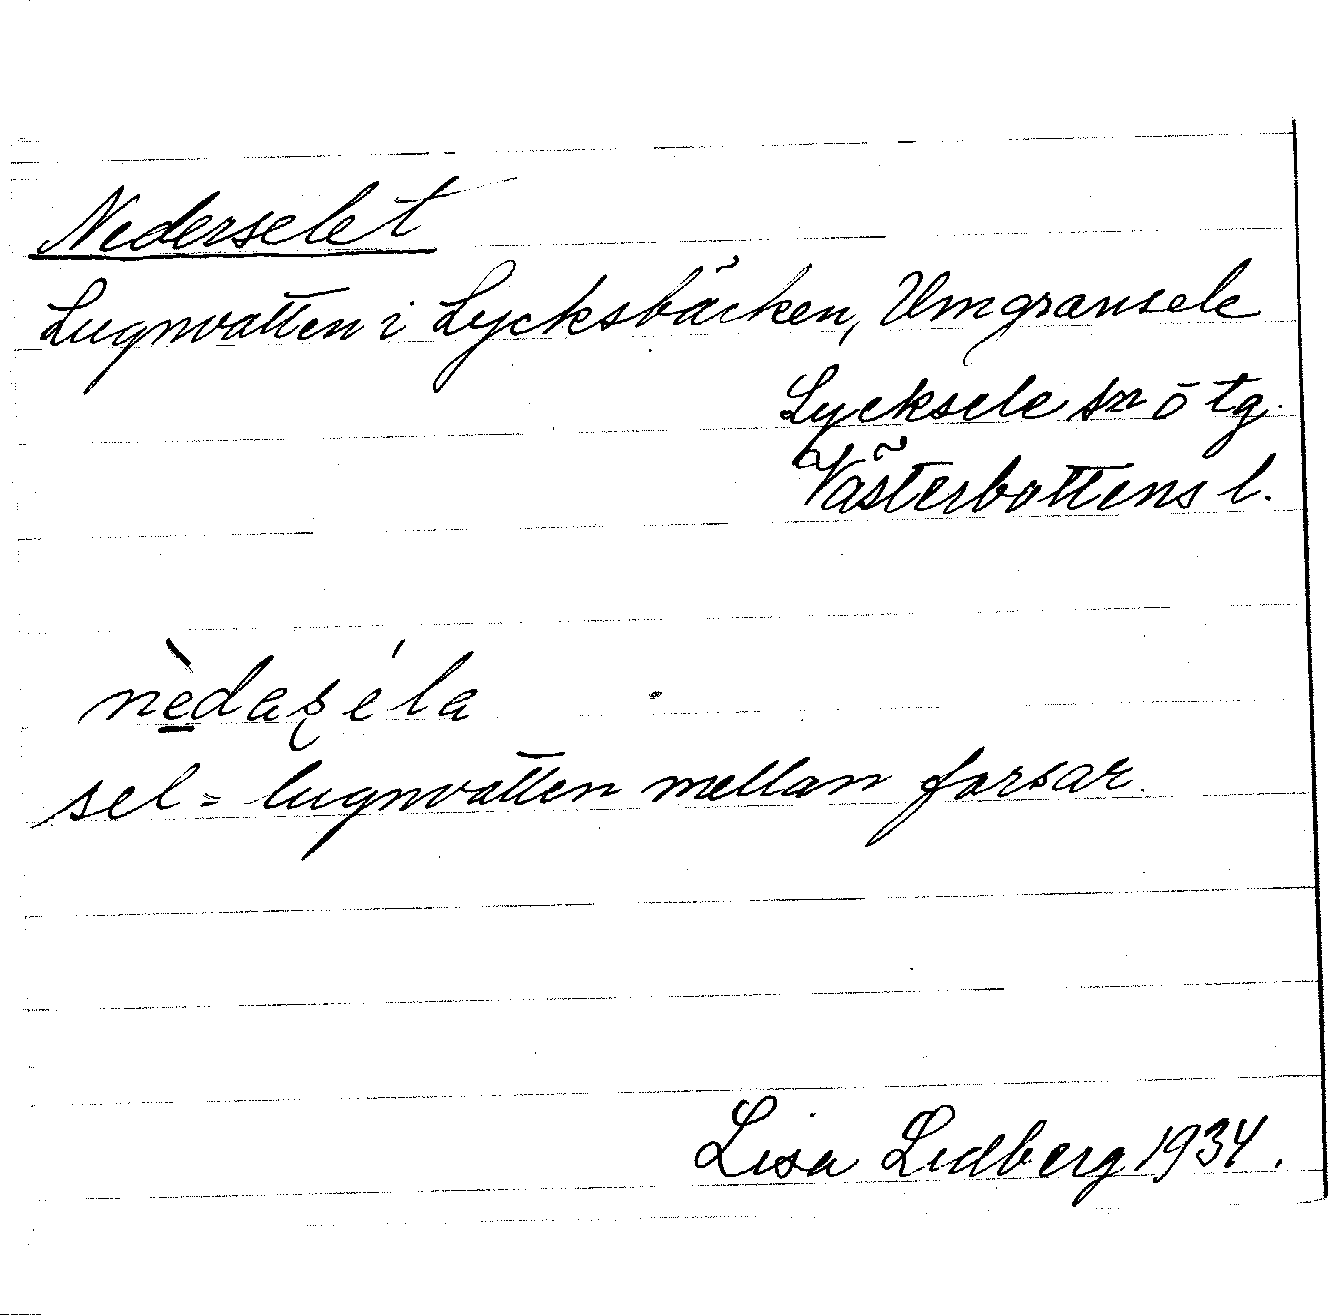 Nederselet
Lugnvatten i Lycksbäcken, Umgransele
Lycksele sn o tg.
Västerbottens l.
nèdaʂéla
sel = lugnvatten mellan forsar.
Lisa Lidberg 1934.